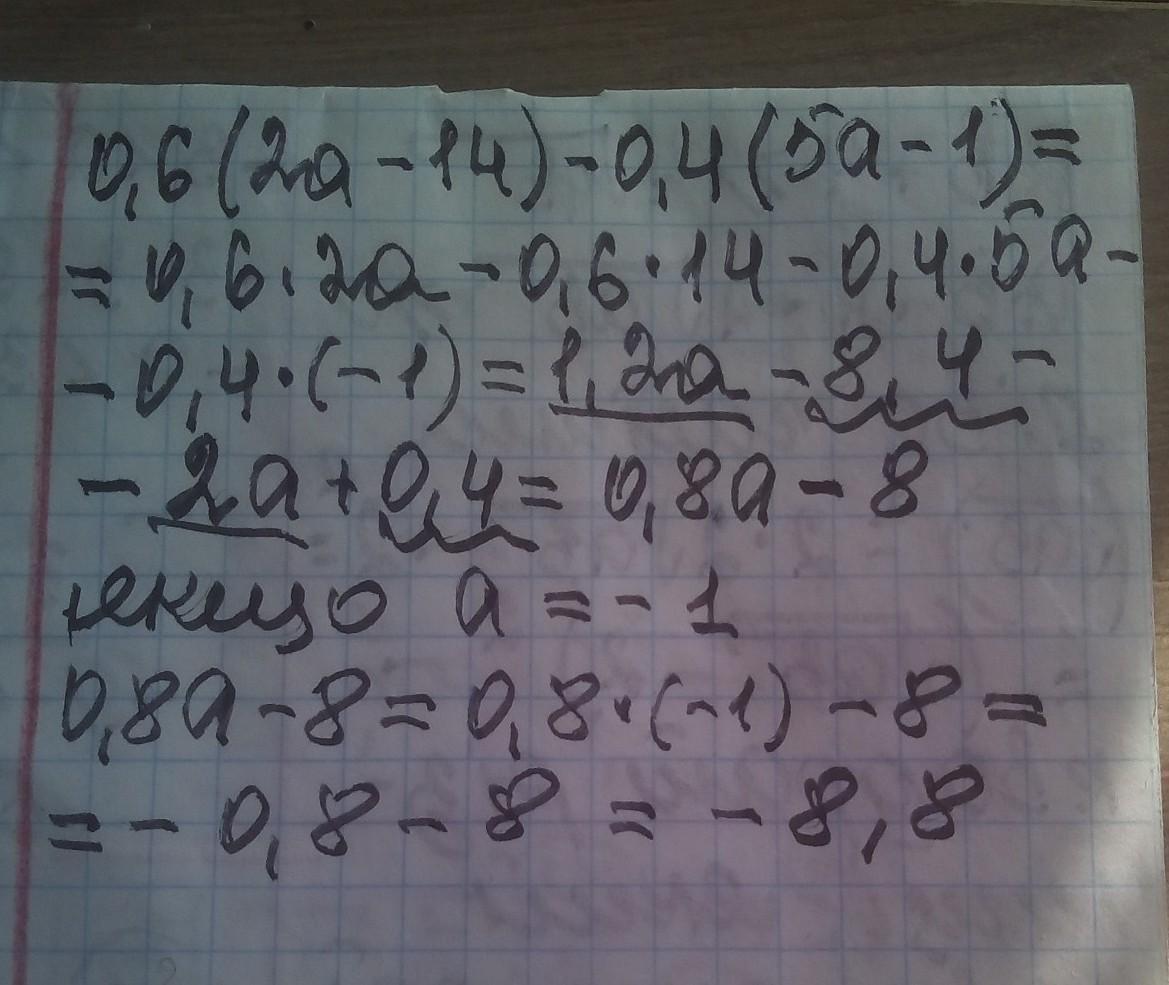 0,6(2a-14)-0,4(5a-1)=
=0,6·2a-0,6·14-0,4·5a-
-0,4·(-1)=1,2a-8,4-
-2a+0,4=0,8a-8
якщо a=-1
0,8a-8=0,8·(-1)-8=
=-0,8-8=-8,8